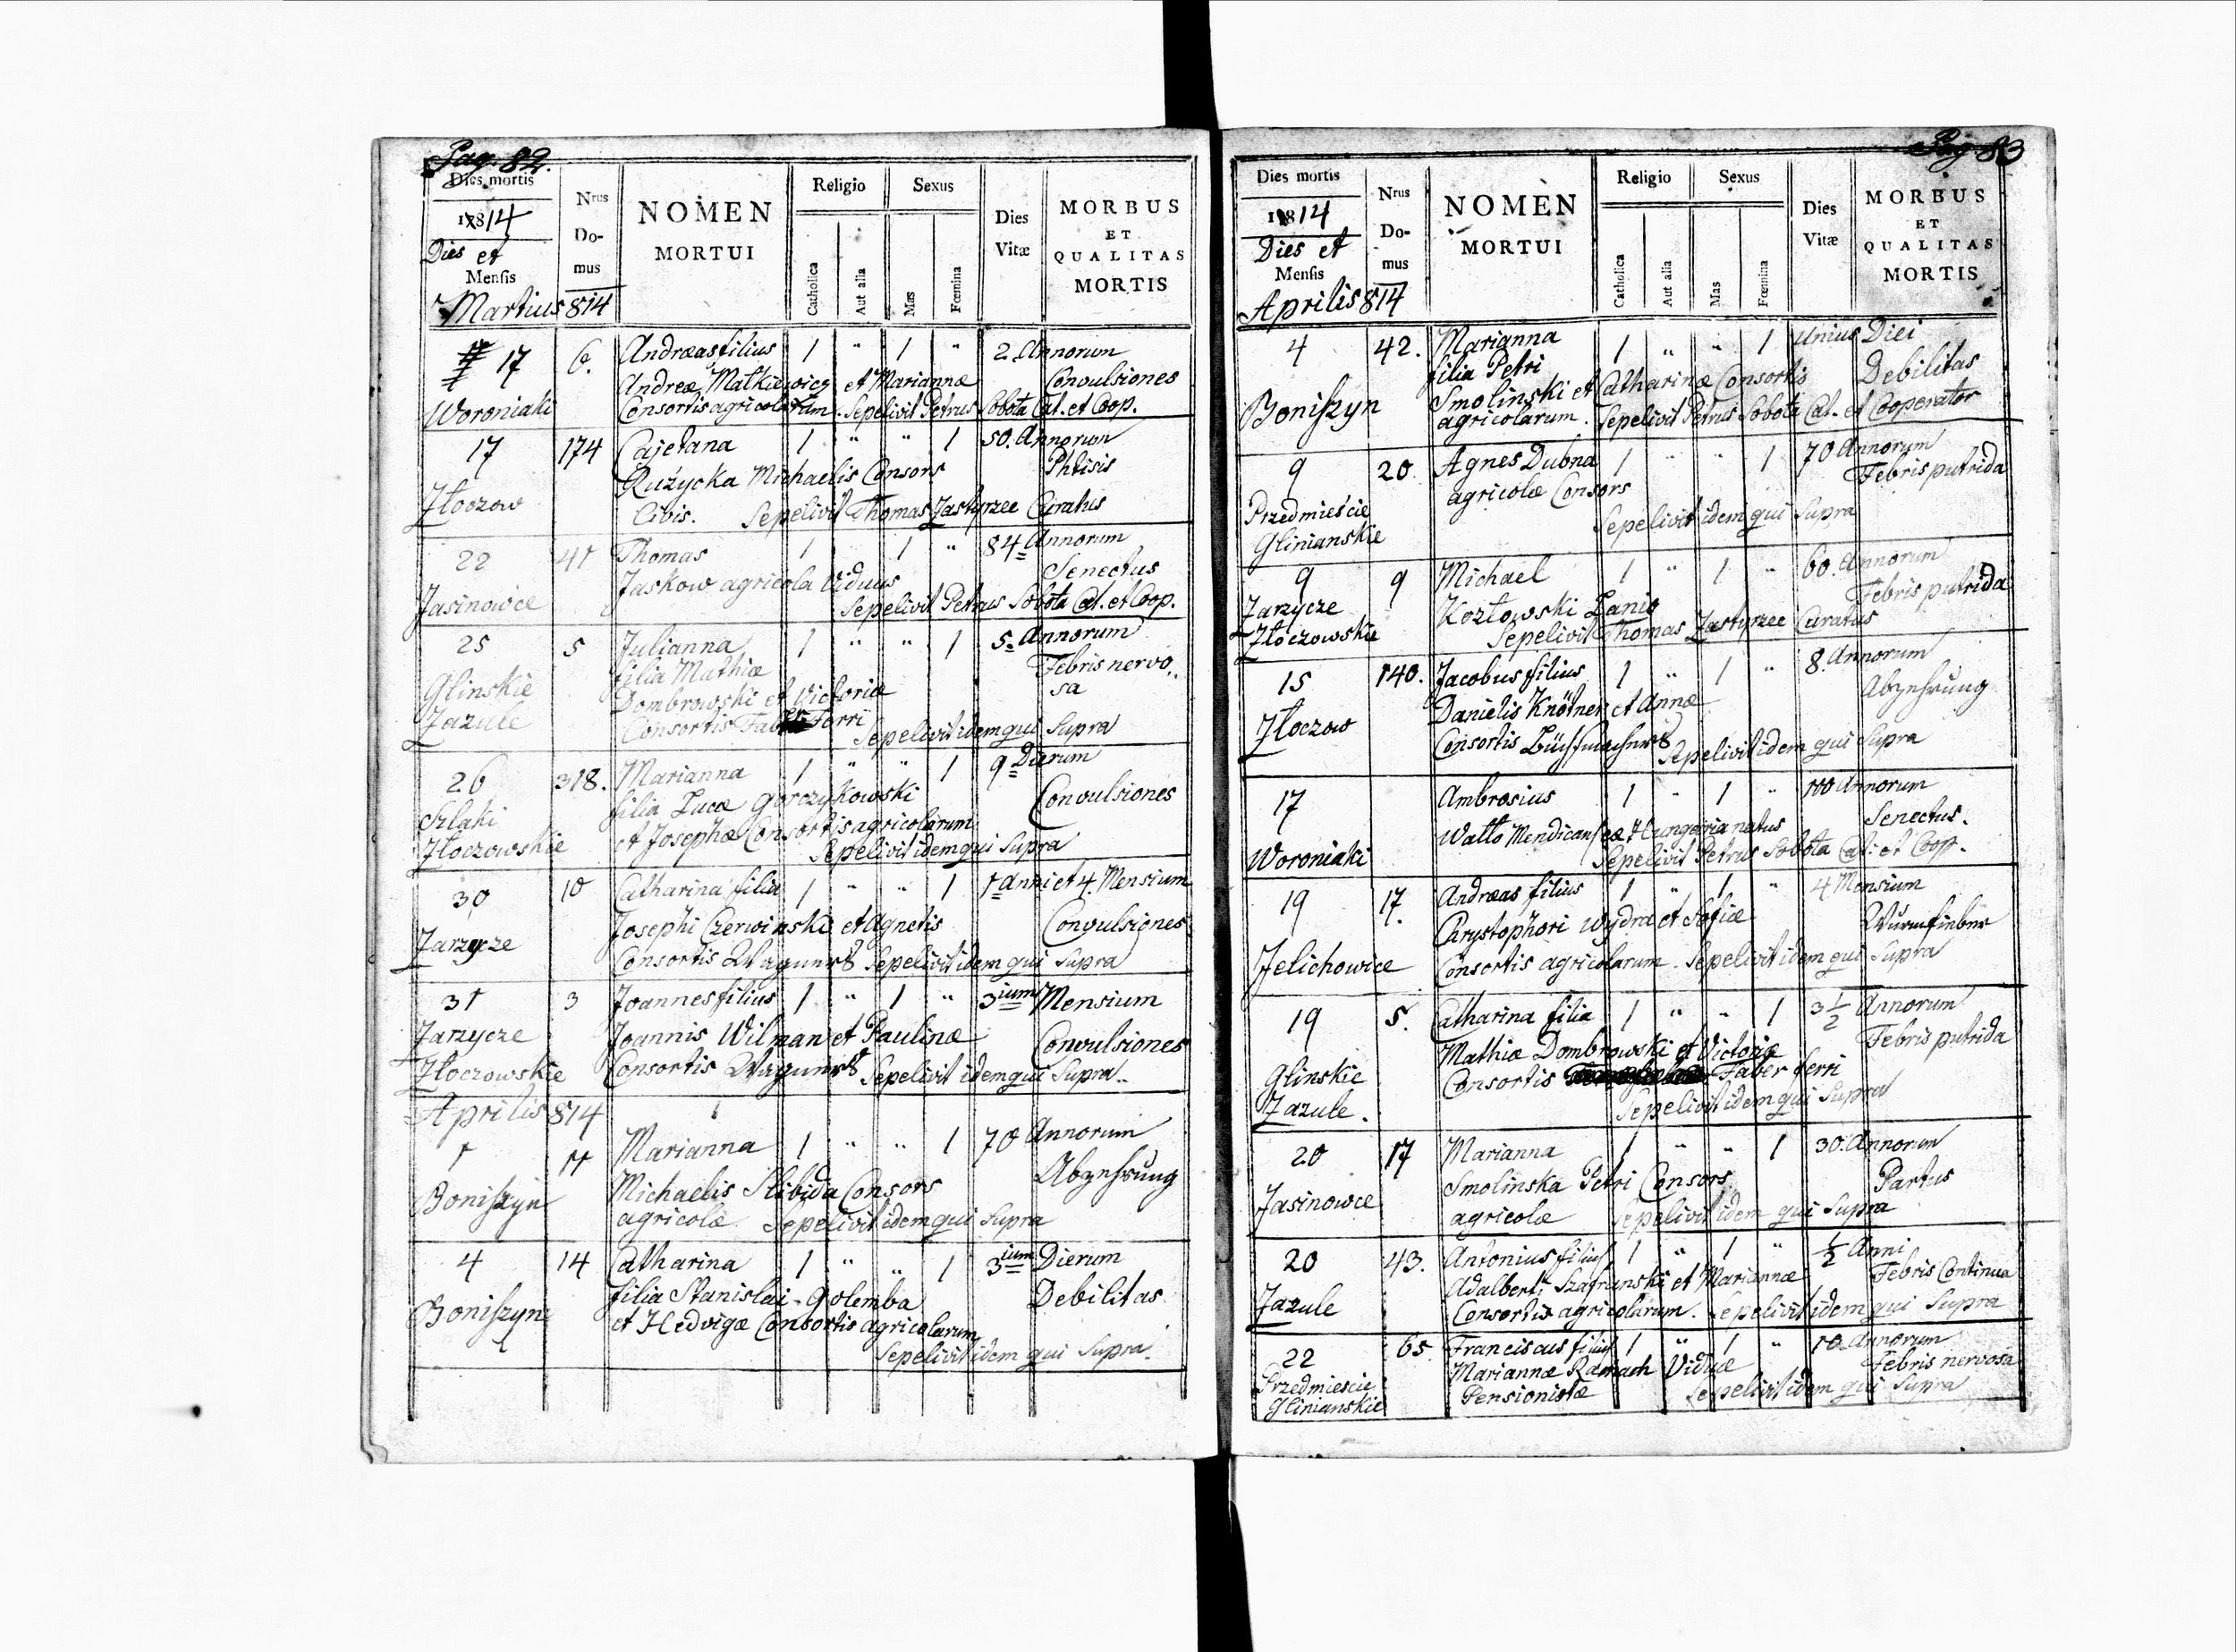 Pag. 82.
Dies mortis
1814
Dies et
Mensis
Martius 814
Nrus
Do-
mus
NOMEN
MORTUI
Religio
Catholica
Aut alia
Sexus
Mas
Fœmina
Dies
Vitæ
MORBUS
ET
QUALITAS
MORTIS
17 6. Andreas filius 1 " 1 " 2. Annorum
Andreæ Matkiewicz et Mariannæ Convulsiones
Woroniaki Consortis agricolarum. Sepelivit Petrus Sobota Cat. et Coop.
17 174 Cajetana 1 " " 1 50. Annorum
Ruzycka Michaelis Consors Phtisis
Złoczow Civis. Sepelivit Thomas Zastyrzec Curatus
22 41 Thomas 1 1 " 84 Annorum
Jaskow agricola Viduus Senectus
Jasinowce Sepelivit Petrus Sobota Cat. et Coop.
25 5 Julianna 1 " " 1 5. Annorum
filia Mathiæ Febris nervo
Glinskie Dombrowski et Victoriæ sa
Zazule Consortis Ferri Sepelivit idem qui Supra
26 318. Marianna 1 " " 1 9 Dierum
Szlaki filia Lucæ Gorczykowski Convulsiones
Złoczowskie et Josephæ Consortis agricolarum
Sepelivit idem qui Supra
30 10 Catharina filia 1 " " 1 1 Anni et 4. Mensium
Josephi Czerwinski et Agnetis Convulsiones
Zarzycze Consortis Wagners Sepelivit idem qui Supra
31 3 Joannes filius 1 " 1 " 3ium Mensium
Zarzycze Joannis Wilman et Paulinæ Convulsiones
Złoczowskie Consortis Wagners Sepelivit idem qui Supra
Aprilis 814
1 11 Marianna 1 " " 1 70 Annorum
Boniszyn Michaelis Slibida Consors Abzehrung
agricolæ Sepelivit idem qui Supra
4 14 Catharina 1 " " 1 3ium Dierum
Boniszyn filia Stanislai Golemba Debilitas
et Hedvigæ Consortis agricolarum
Sepelivit idem qui Supra.
Pag 83
Dies mortis
1814
Dies et
Mensis
Aprilis 814
Nrus
Do-
mus
NOMEN
MORTUI
Religio
Catholica
Aut alia
Sexus
Mas
Fœmina
Dies
Vitæ
MORBUS
ET
QUALITAS
MORTIS
4 42. Marianna 1 " " 1 Unius Diei
filia Petri Debilitas
Boniszyn Smolinski et Catharinæ Consortis
agricolarum. Sepelivit Petrus Sobota Cat. et Cooperator
9 20 Agnes Dubna 1 " " 1 70 Annorum
Przedmieście agricolæ Consors Febris putrida
Glinianskie Sepelivit idem qui Supra
9 9 Michael 1 " 1 " 60. Annorum
Zarzycze Kozłowski Lanio Febris putrida
Złoczowskie Sepelivit Thomas Zastyrzec Curatus
15 140. Jacobus filius 1 " 1 " 8. Annorum
Danielis Knötner et Annæ Abzehrung
Złoczow Consortis Büchsmachers Sepelivit idem qui Supra
17 Ambrosius 1 " 1 " 100 Annorum
Watto Mendicans ex Hungaria natus Senectus.
Woroniaki Sepelivit Petrus Sobota Cat. et Coop.
19 17. Andreas filius 1 " 1 " 4 Mensium
Chrystophori Wydra et Sofiæ Wurmfieber
Jelichowice Consortis agricolarum. Sepelivit idem qui Supra
19 5. Catharina filia 1 " " 1 3 1/2 Annorum
Mathiæ Dombrowski et Victoriæ Febris putrida
Glinskie Consortis Faber ferri
Zazule. Sepelivit idem qui Supra
20 17 Marianna 1 " " 1 30. Annorum
Smolinska Petri Consors Partus
Jasinowce agricolæ Sepelivit idem qui Supra
20 43. Antonius filius 1 " 1 " 1/2 Anni
Adalberti Szafranski et Mariannæ Febris Continua
Zazule Consortis agricolarum. Sepelivit idem qui Supra
22 65 Franciscus filius 1 " 1 " 10. Annorum
Przedmiescie Mariannæ Viduæ Febris nervosa
Glinianskie Pensionistæ Sepelivit idem qui Supra